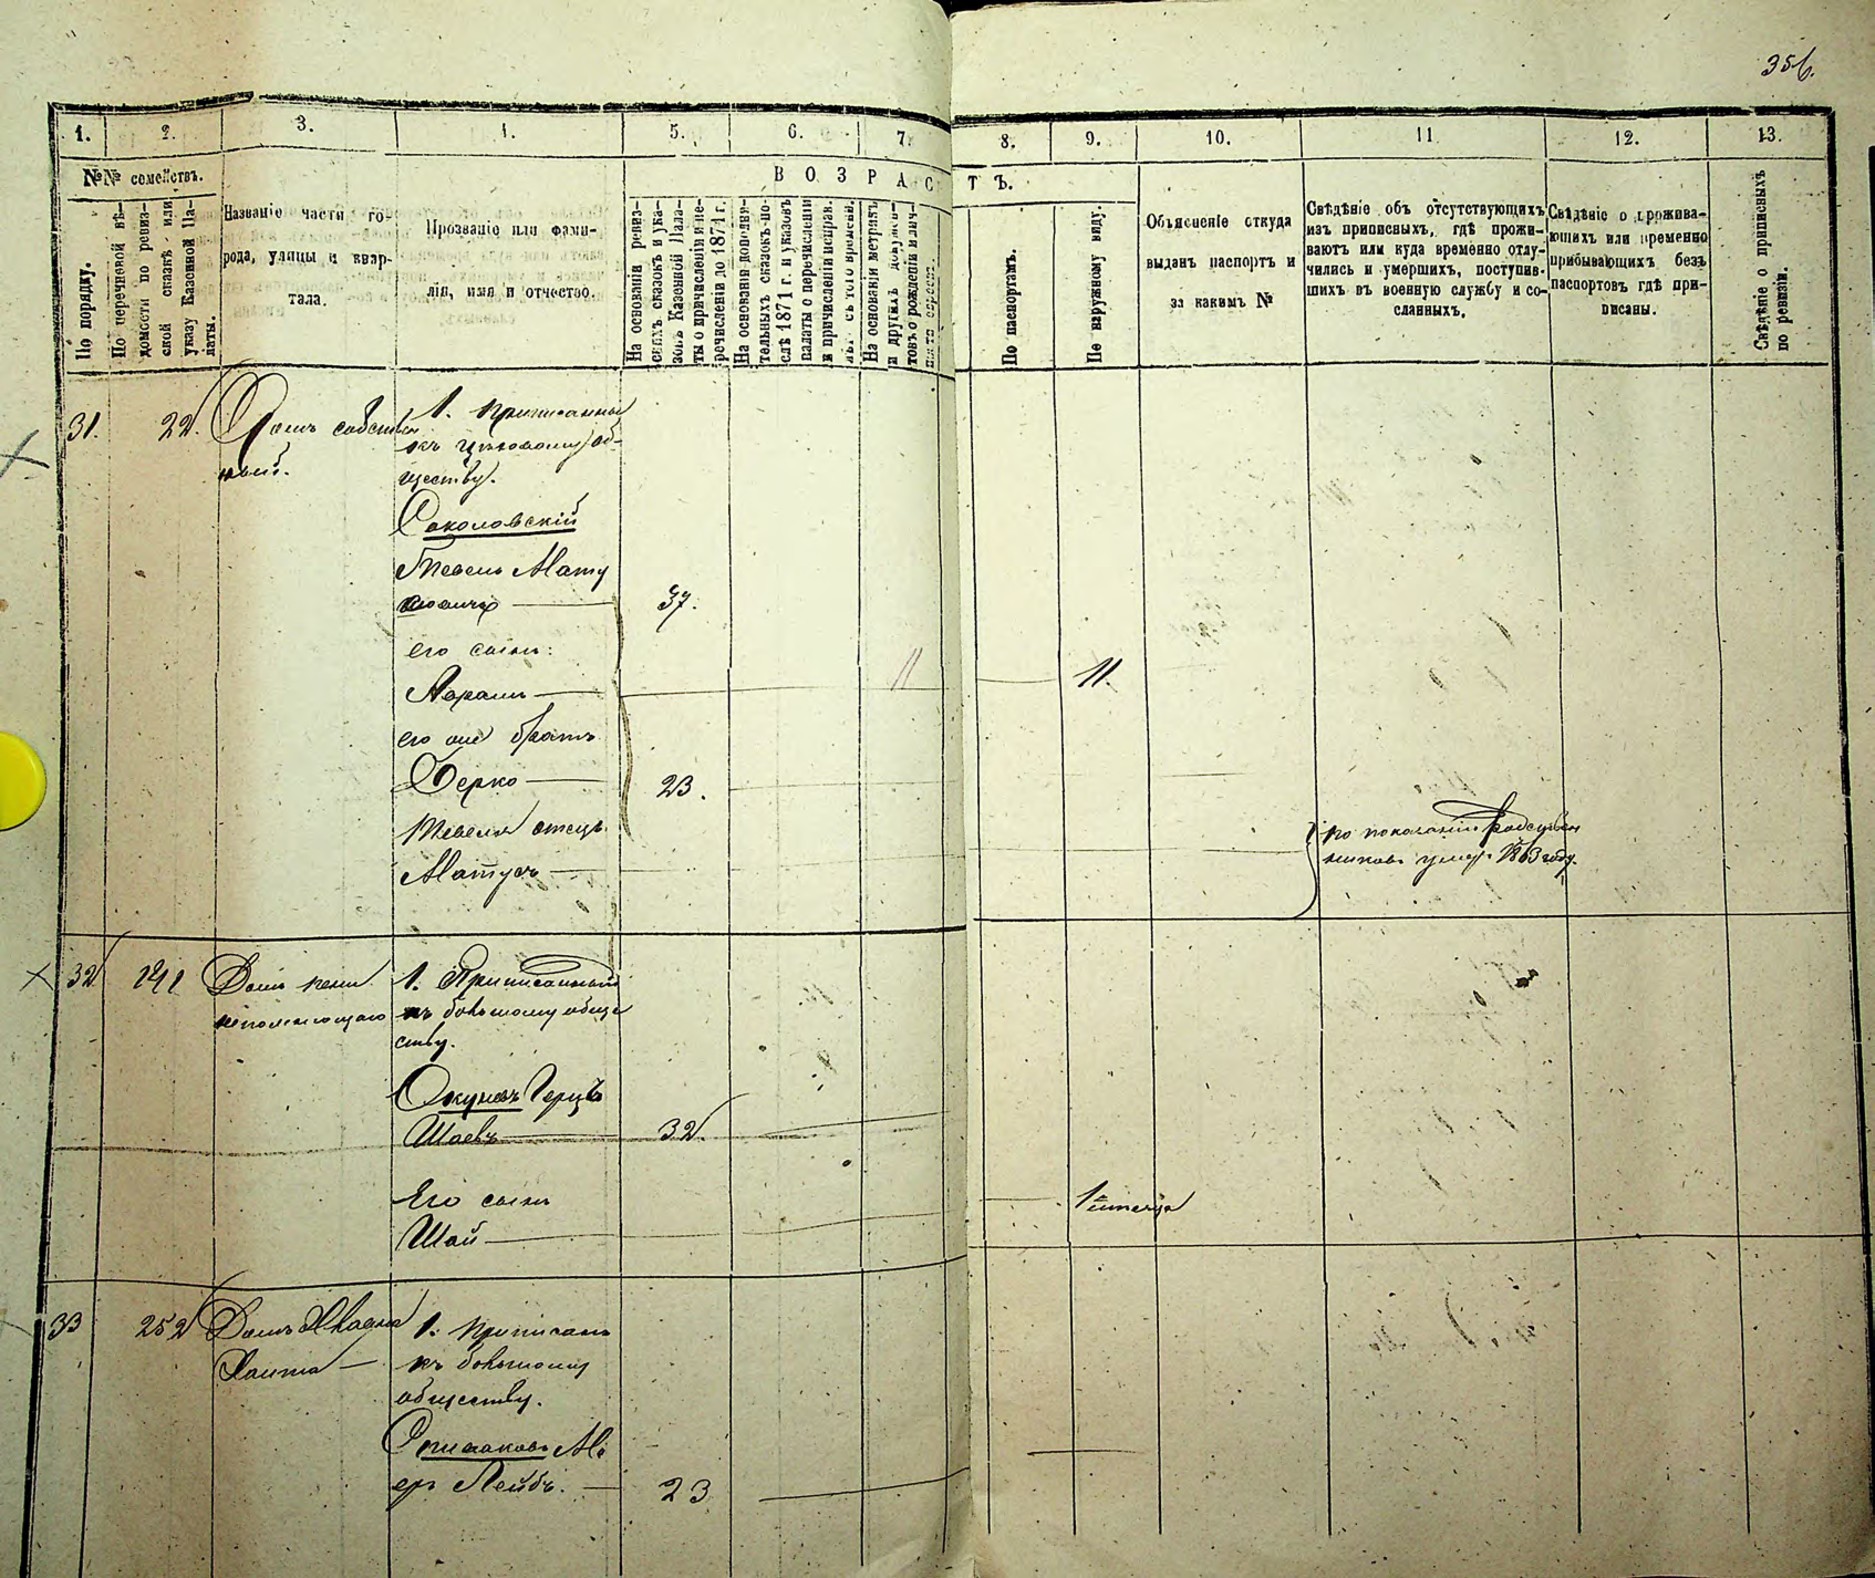 356.
1. 2. 3. 4. 5. 6. 7. 8. 9. 10. 11 12. 13.
№№ семействъ.
По порядку.
По перечневой вѣ-
домости по ревиз-
ской сказкѣ или
указу Казенной Па-
латы.
Названіе части го-
рода, улицы и квар-
тала.
Прозваніе или фами-
лія, имя и отчество.
ВОЗРАСТЪ.
На основаніи ревиз-
скихъ сказокъ и ука-
зовъ Казенной Пала-
ты о причисленіи и пе-
речисленіи до 1871 г.
На основаніи дополни-
тельныхъ сказокъ по-
слѣ 1871 г. и указовъ
палаты о перечисленіи
и причисленіи исправ.
На основаніи метрикъ
и другихъ докумен-
товъ о рожденіи
По паспортамъ.
По наружному виду.
Объясненіе откуда
выданъ паспортъ и
за какимъ №
Свѣдѣніе объ отсутствующихъ
изъ приписныхъ, гдѣ прожи-
ваютъ или куда временно отлу-
чились и умершихъ, поступив-
шихъ въ военную службу и со-
сланныхъ.
Свѣдѣніе о прожива-
ющихъ или временно
прибывающихъ безъ
паспортовъ гдѣ при-
писаны.
Свѣдѣніе о приписныхъ
по ревизіи.
31. 22. Домъ собствен
ный.
1. Приписанный
къ цеховому об-
ществу.
Соколовскій
Тевель Мату
совичъ 37.
его сынъ:
Абрамъ 11 11.
его же братъ
Берко 23.
Тевеля отецъ
Матусъ
по показанію родствен
никовъ умер. 1863 году.
32 241 Домъ
1. Приписанный
къ большому обще
ству.
Окуневъ Герцъ
Шаевъ 32.
Его сынъ
Шай
33 252 Домъ
1. Приписанъ
къ большому
обществу.
Ме
еръ Лейбъ. 23